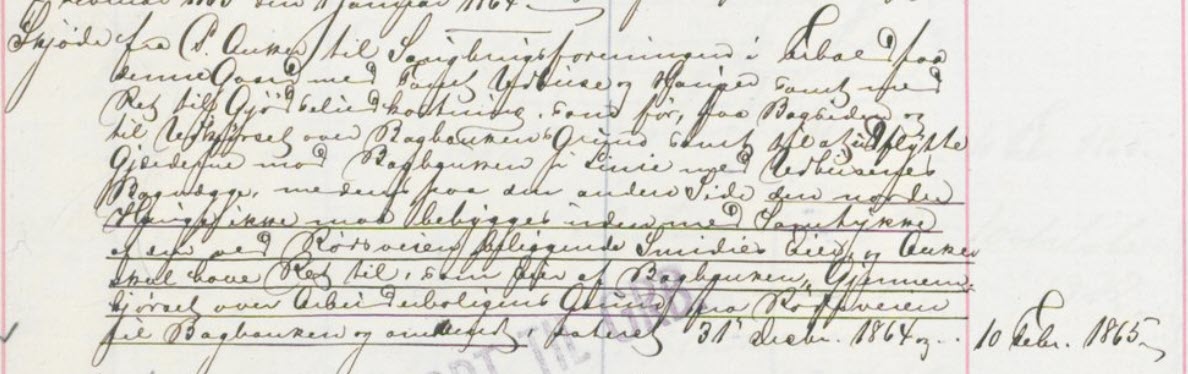 Februar 1863 den 1 Januar 1864.
Skjøde fra C. Anker til Sparebringsforeningen i paa
denne Gaard med samt Udhuse og Hauger samt med
Ret til Gjødseludkostning, som før, paa Bagsiden og
til Udkjørsel over Bagbankens Grund samt til at udflytte
Gjæderne mod Bagbanken i Linie med Udhusenes
Bagvægge, medens paa den anden Side den nordre
Hauge ikke maa bebygges uden med Samtykke
af den ved Rørsveien beliggende Smidies Eier, og Anker
skal have Ret til, som Eier af Bagbanken, Gjennem-
kjørsel over Arbeiderboligens Grund fra Rørsveien
til Bagbanken og omvendt, dateret 31 Decbr. 1864 og .. 10 Febr. 1865